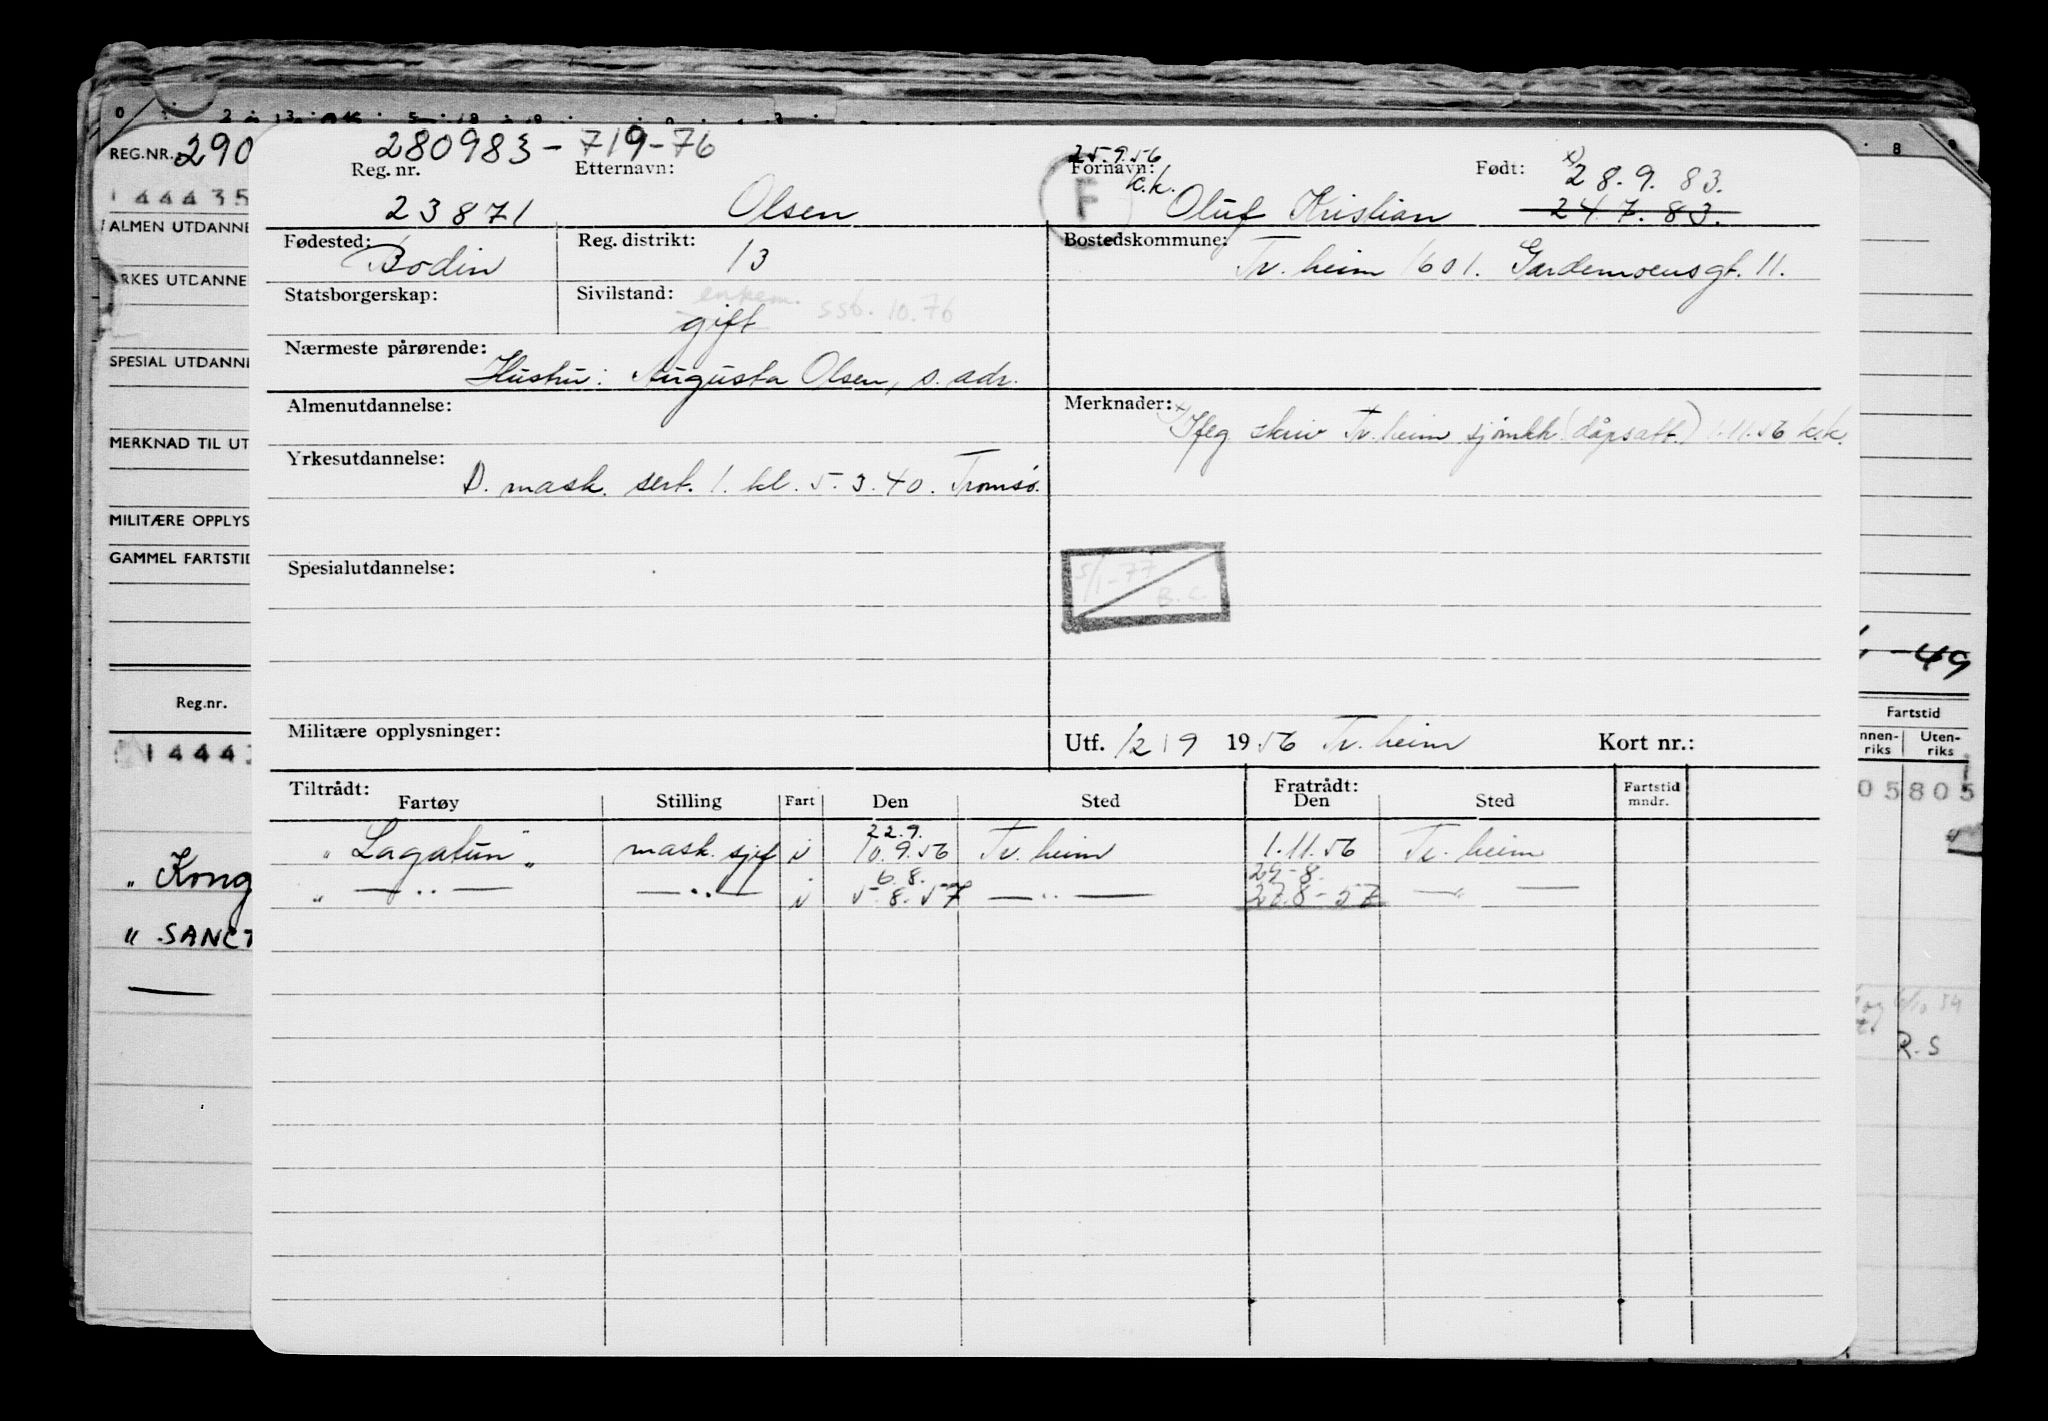 REG.NR. 290
280983 - 719-76
Reg. nr.
Etternavn:
25.9.56
Fornavn:
k.k.
F
Født:
x)
28.9.83.
144435
23871
Olsen
Oluf Kristian
24.7.83.
ALMEN UTDANNE
Fødested:
Bodin
Reg. distrikt:
13
Bostedskommune:
Tr. heim 1601. Gardemoensgt. 11.
RKES UTDANNE
Statsborgerskap:
Sivilstand:
enkem. ssb. 10.76
gift
SPESIAL UTDANNI
Nærmeste pårørende:
Hustru: Augusta Olsen, s. adr.
Almenutdannelse:
Merknader:
x) Ifeg skriv Tr. heim sjømkk (dåpsatt.) 1.11.56 k.k.
MERKNAD TIL UT
Yrkesutdannelse:
D. mask. sert. 1. kl. 5.3.40. Tromsø.
MILITÆRE OPPLYS
GAMMEL FARTSTID
Spesialutdannelse:
5/1-77
B.C.
-49
Reg.nr.
Militære opplysninger:
Utf. 12/9 1956 Tr. heim
Kort nr.:
Fartstid
nnen-
riks
Uten-
riks
1444
05805
Tiltrådt:
Fartøy
Stilling
Fart
Den
Sted
Fratrådt:
Den
Sted
Fartstid
mndr.
22.9.
"Lagatun" mask. sjef i 10.9.56 Tr. heim 1.11.56 Tr. heim
6.8. 29-8.
" — .. — — .. — i 5.8.57 — .. — 27.8-57 — " —
" Kong
" SANCT
R.S